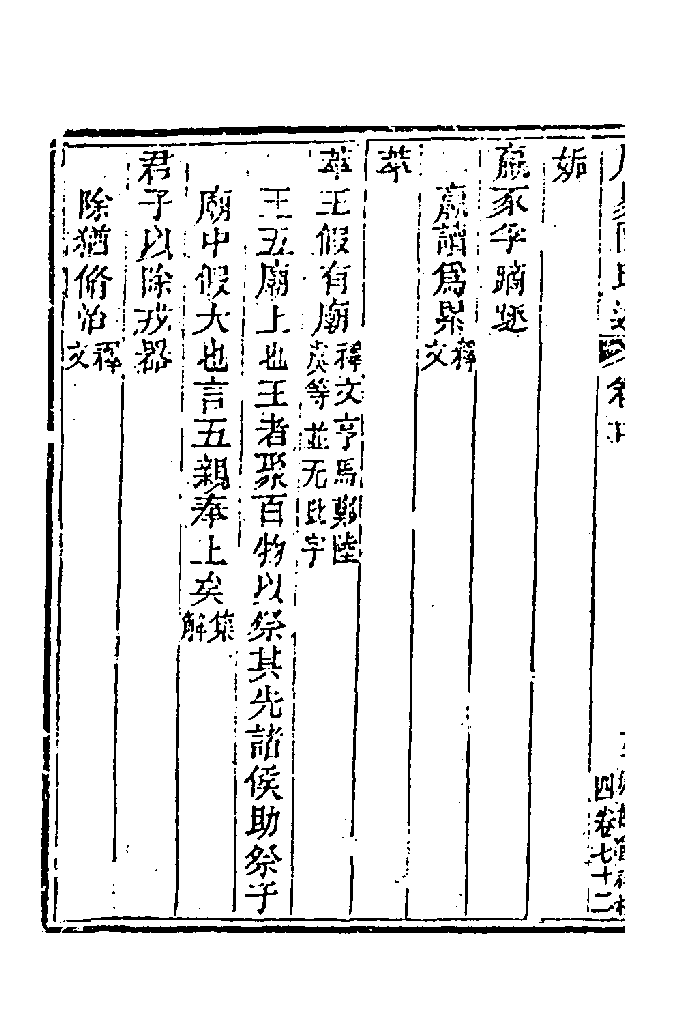 四卷七十二
姤
羸豕孚蹢躅
羸讀爲累釋文
萃
萃王假有廟釋文亨馬鄭陸虞等並无此字
王五廟上也王者聚百物以祭其先諸侯助祭于
廟中假大也言五親奉上矣集解
君子以除戎器
除猶脩治釋文